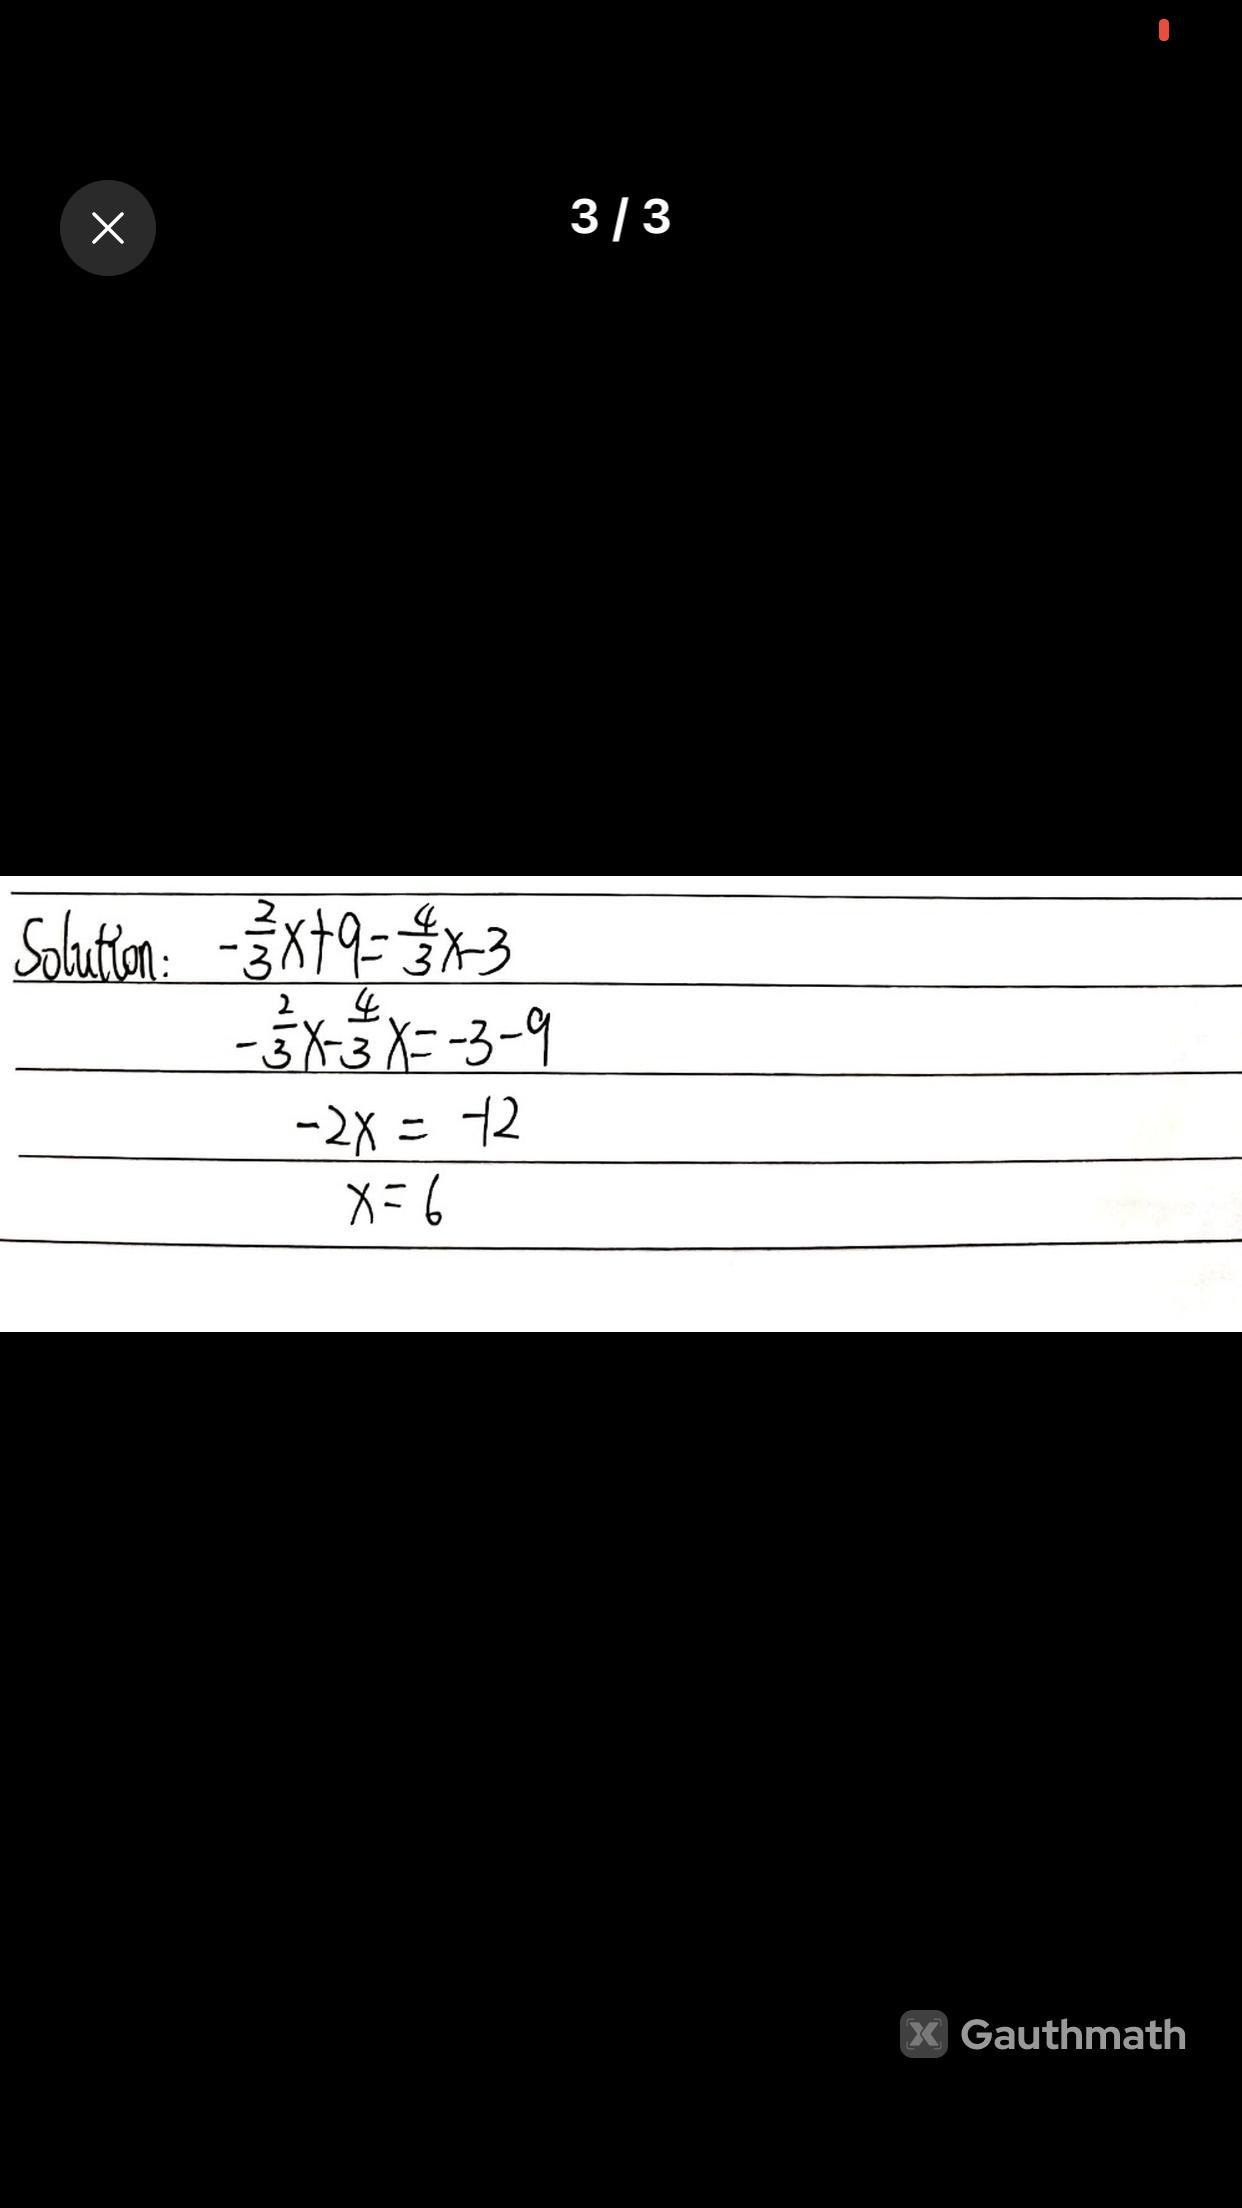 3 / 3
Solution: -2/3x+9=4/3x-3
-2/3x-4/3x=-3-9
-2x = -12
x=6
Gauthmath